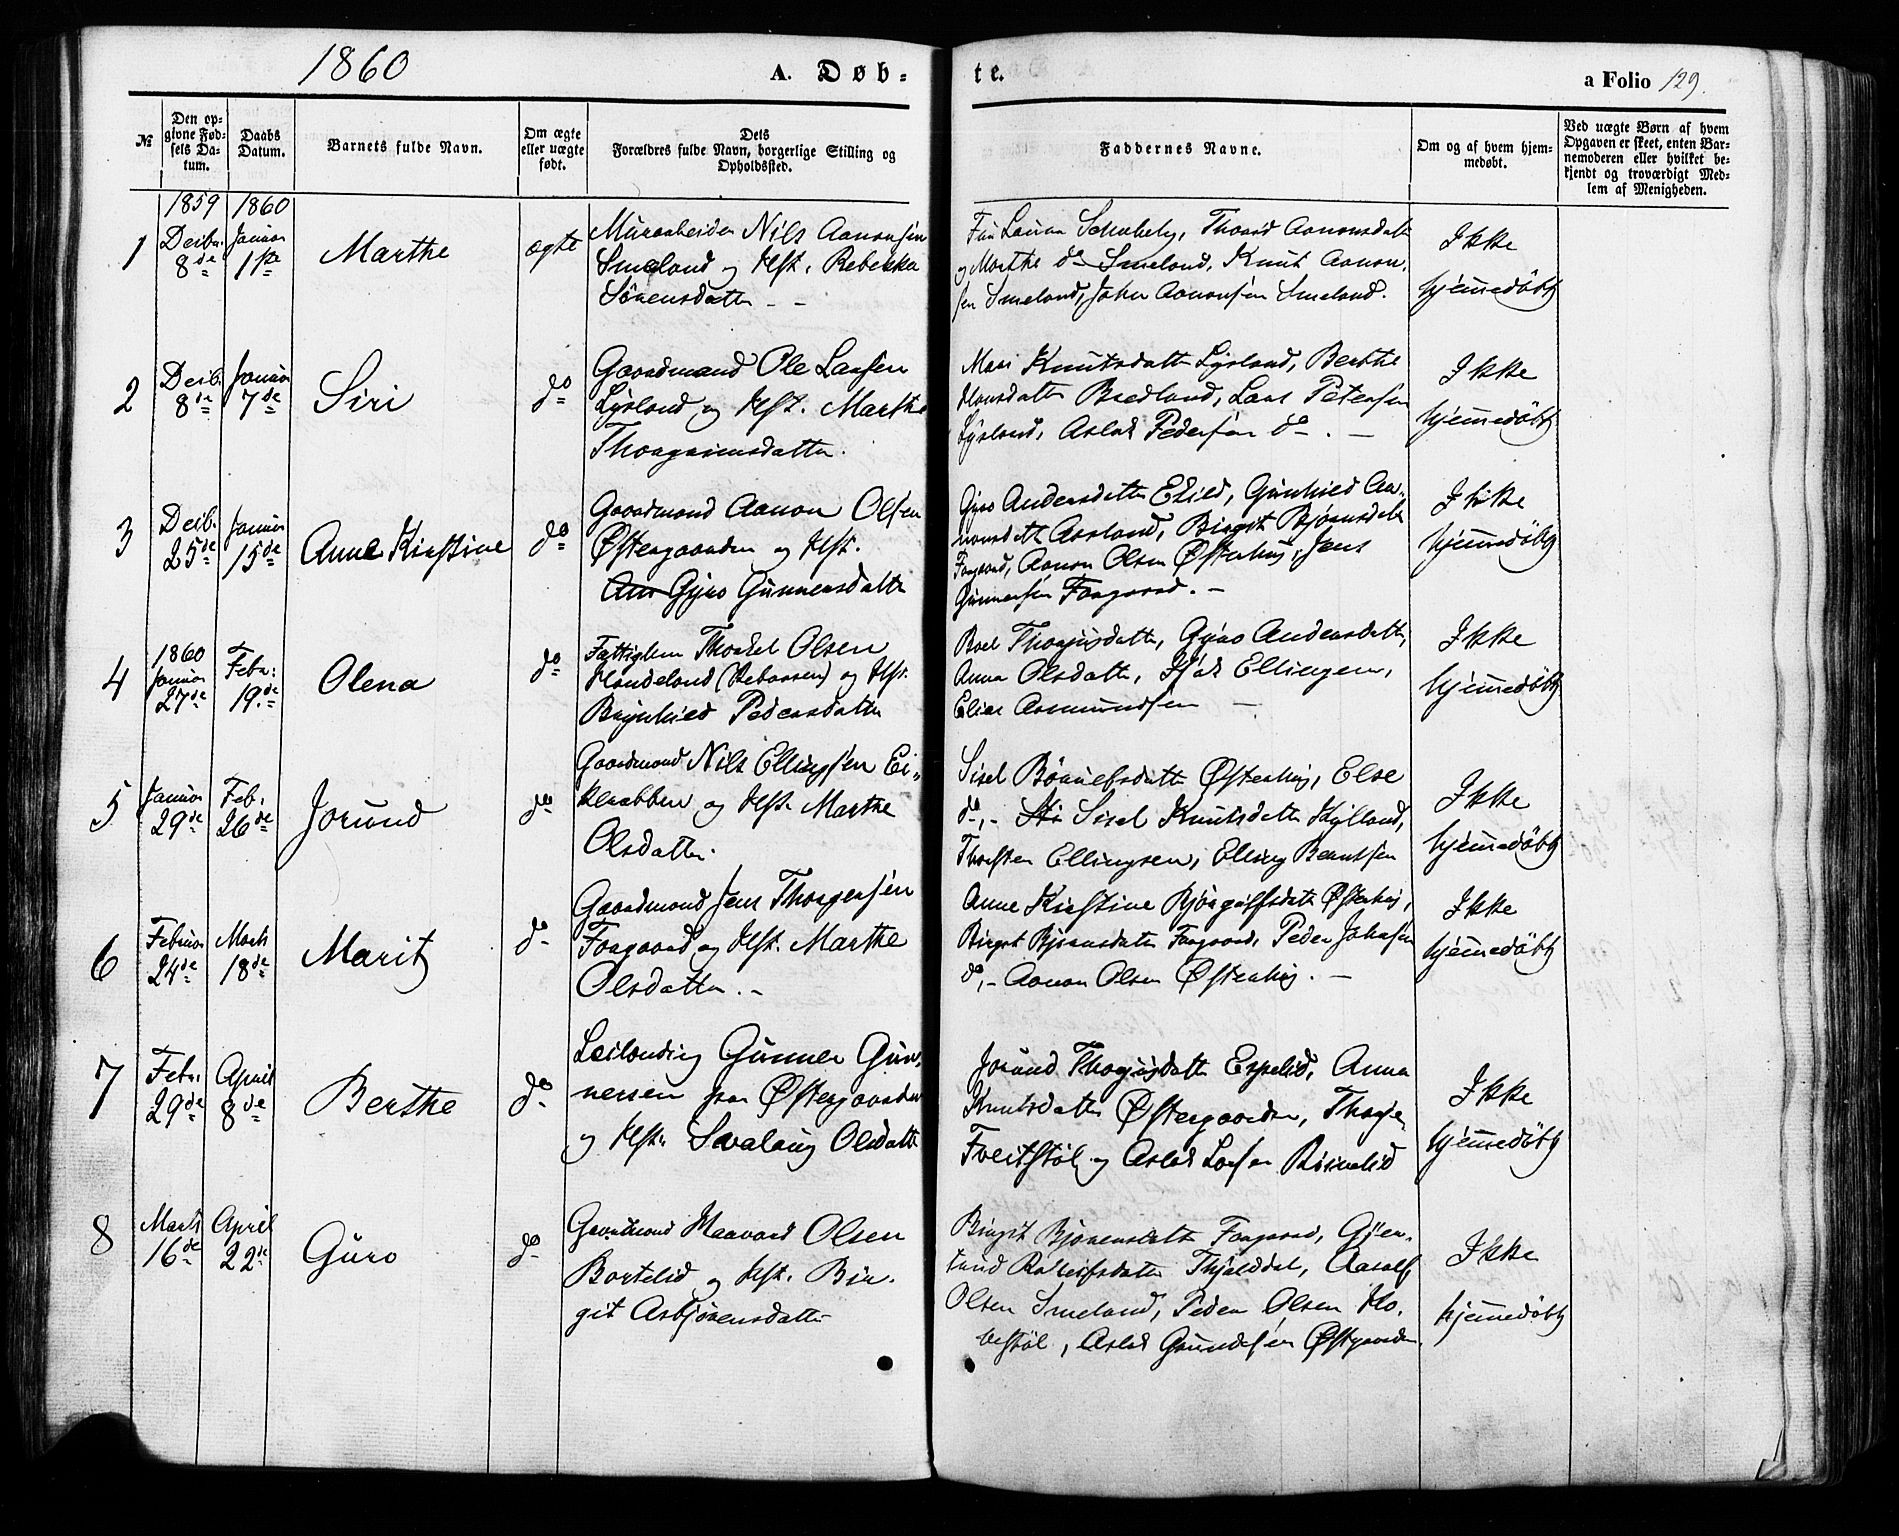 1860
A. Døb-
te.
a Folio 129.
№
Den op-
givne Fød-
sels Da-
tum.
Daabs
Datum.
Barnets fulde Navn.
Om ægte
eller uægte
født.
Dets
Forældres fulde Navn, borgerlige Stilling og
Opholdssted.
Faddernes Navne.
Om og af hvem hjem-
medøbt.
Ved uægte Børn af hvem
Opgaven er skeet, enten Bar-
nemoderen eller hvilket be-
kjendt og troværdigt Med-
lem af Menigheden.
1859 1860
1
Decbr. 8de
Januar 1ste
Marthe
ægte
Nils Aanonsen
Smeland og Kst. Rebekka
Sørensdatter - -
Laura Thorid Aanonsdatt
og Marthe do Smeland, Knut Aanon-
sen Smeland, John Aanonsen Smeland.
Ikke
hjemmedøbt
2
Decb. 8de
Januar 7de
Siri
do
Gaardmand Ole Larsen
Lysland og Kst. Marthe
Thorgrimsdatter.
Mari Knutsdatter Lysland, Berthe
Hansdatter Bredland, Lars Petersen
Lysland, Aslak Pedersen do. -
Ikke
hjemmedøbt
3
Decb. 25de
Januar 15de
Anne Kirstine
do
Gaardmand Aanon Olsen
Østergaarden og Kst.
Gyro Gunnersdatter
Gyro Andersdatter Gunhild Aa-
nonsdatt Aasland, Birgit Bjørnsdatt
Faagaard, Aanon Olsen Østerhus, Jens
Gunnersen Faagaard. -
Ikke
hjemmedøbt
4
1860
Januar 27de
Febr: 19de
Olena
do
Fattiglem Thorkel Olsen
Handeland og Kst.
Brynhild Pedersdatter
Boel Gyro Andersdatter,
Anna Olsdatter, Ellingsen,
Elias Asmundsen -
Ikke
hjemmedøbt
5
Januar 29de
Feb. 26de
Jorund
do
Gaardmand Nils Ellingsen Ei-
og Kst. Marthe
Olsdatter.
Sisel Østerhus, Else
do, - Sisel Knutsdatter Kylland,
Ellingsen, Elling Berntsen
Ikke
hjemmedøbt
6
Februar 24de
Marts 18de
Marit
do
Gaardmand Jens Thorgersen
Faagaard og Kst. Marthe
Olsdatter. -
Anne Kirstine Bjørgulfsdatt Østerhus,
Birgit Bjørnsdatter Faagaard, Peder Johnsen
do, - Aanon Olsen Østerhus. -
Ikke
hjemmedøbt
7
Febr. 29de
April 8de
Berthe
do
Leilending Gunner Gun-
nersen paa Østergaarden
og Kst. Svalaug Olsdatt
Jorund Espelid, Anna
Knutsdatter Østergaarden,
Tveitstøl og Aslak Larsen
Ikke
hjemmedøbt
8
Marts 16de
April 22de
Guro
do
Gaardmand Haavard Olsen
Bortelid og Kst. Bir-
git Asbjørensdatter
Birgit Bjørensdatt Faagaard,
Aasolf
Olsen Smeland, Peder Olsen Ho-
bestøl, Aslak
Ikke
hjemmedøbt